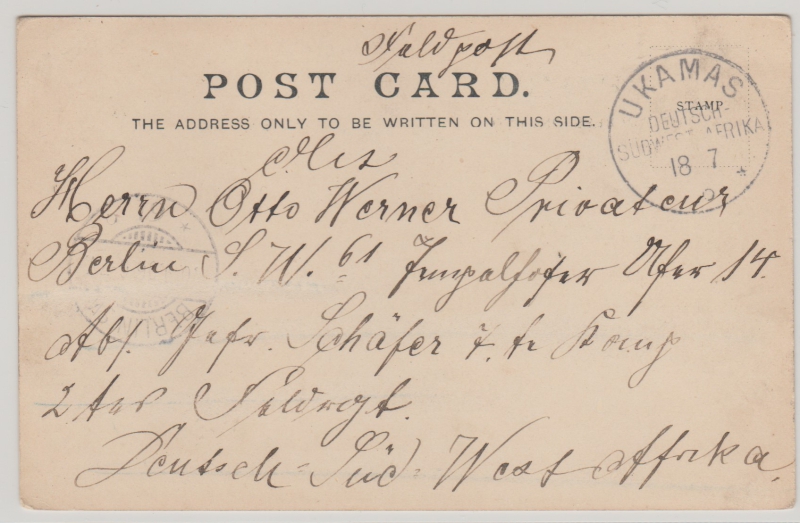 Feldpost
POST CARD.
THE ADDRESS ONLY TO BE WRITTEN ON THIS SIDE.
STAMP
UKAMAS
DEUTSCH-
SÜDWEST-AFRIKA
18 7
Herrn Otto Werner Privateur
Berlin S. W. 61 Tempelhofer Ufer 14.
BERLIN
Abs. Gefr. Schäfer 7. te Komp
2tes Feldrgt.
Deutsch-Süd-West Afrika.